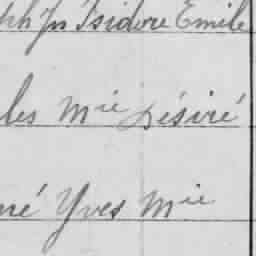 ph Jn Isidore Emile
les Mie Désiré
né Yves Mie